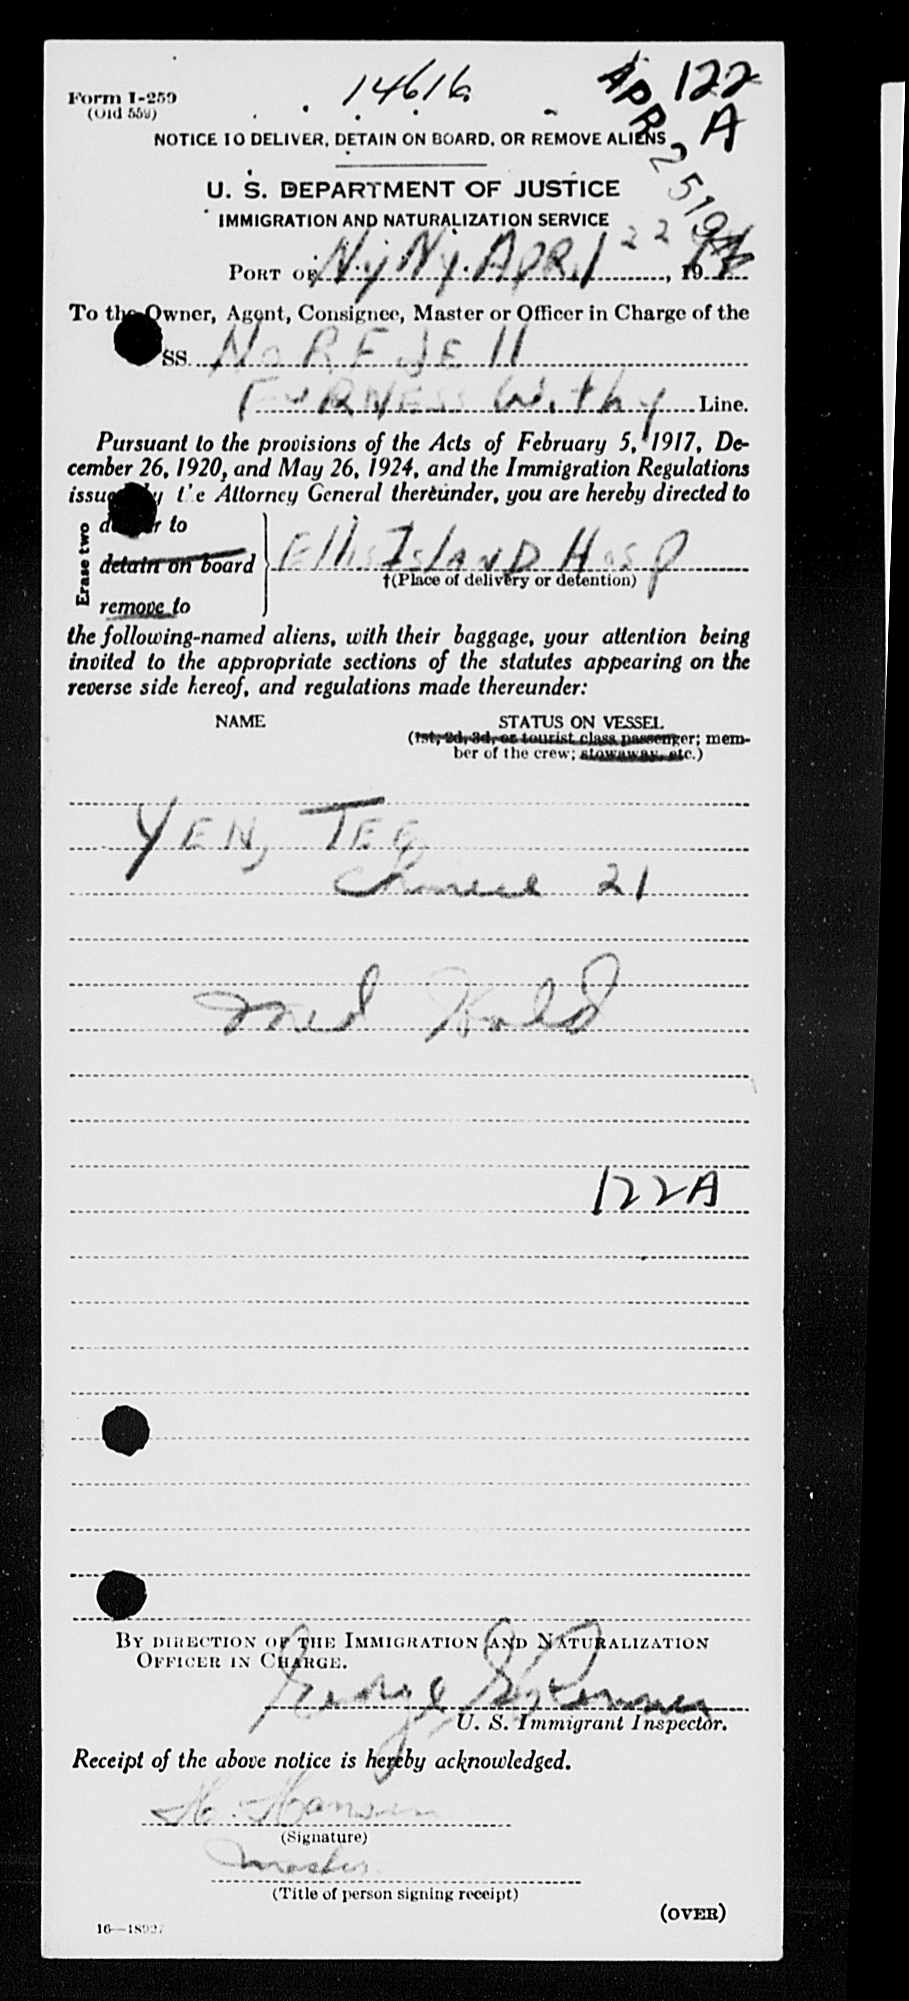 Form I-259
(Old 559)
14616
122
A
APR 25 194
NOTICE TO DELIVER, DETAIN ON BOARD, OR REMOVE ALIENS
U. S. DEPARTMENT OF JUSTICE
IMMIGRATION AND NATURALIZATION SERVICE
PORT OF N.Y. N.Y. APRIL 22, 19
To the Owner, Agent, Consignee, Master or Officer in Charge of the
SS. NOREFJELL
FURNESS Withy Line.
Pursuant to the provisions of the Acts of February 5, 1917, De-
cember 26, 1920, and May 26, 1924, and the Immigration Regulations
issued by the Attorney General thereunder, you are hereby directed to
Erase two
deliver to
detain on board
remove to
Ellis ISLAND Hosp
†(Place of delivery or detention)
the following-named aliens, with their baggage, your attention being
invited to the appropriate sections of the statutes appearing on the
reverse side hereof, and regulations made thereunder:
NAME STATUS ON VESSEL
(1st, 2d, 3d, or tourist class passenger; mem-
ber of the crew; stowaway, etc.)
YEN, TEE
Chinese 21
Med Hold
122A
BY DIRECTION OF THE IMMIGRATION AND NATURALIZATION
OFFICER IN CHARGE.
George
U. S. Immigrant Inspector.
Receipt of the above notice is hereby acknowledged.
H. Hansen
(Signature)
Master
(Title of person signing receipt)
(OVER)